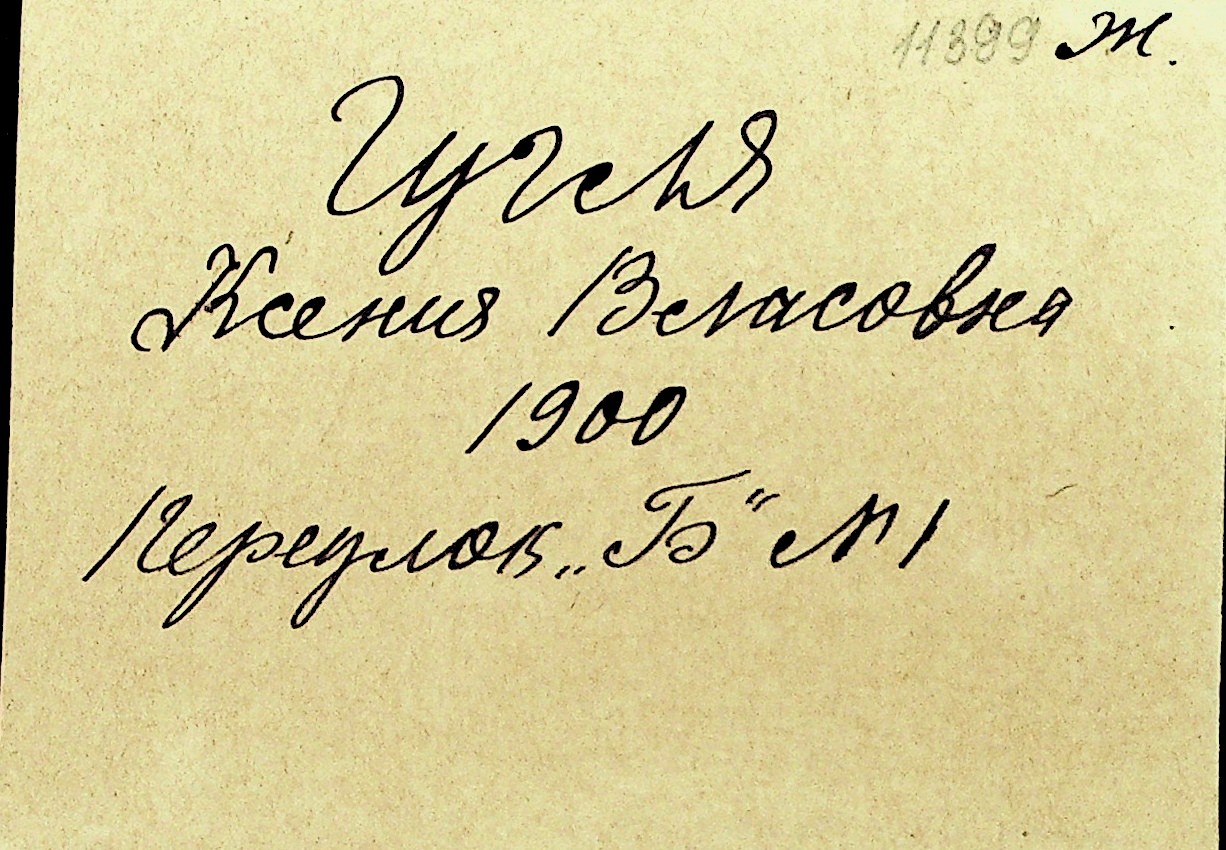 11399 Ж.
Гугля
Ксения Власовна
1900
Переулок „Б“ № 1